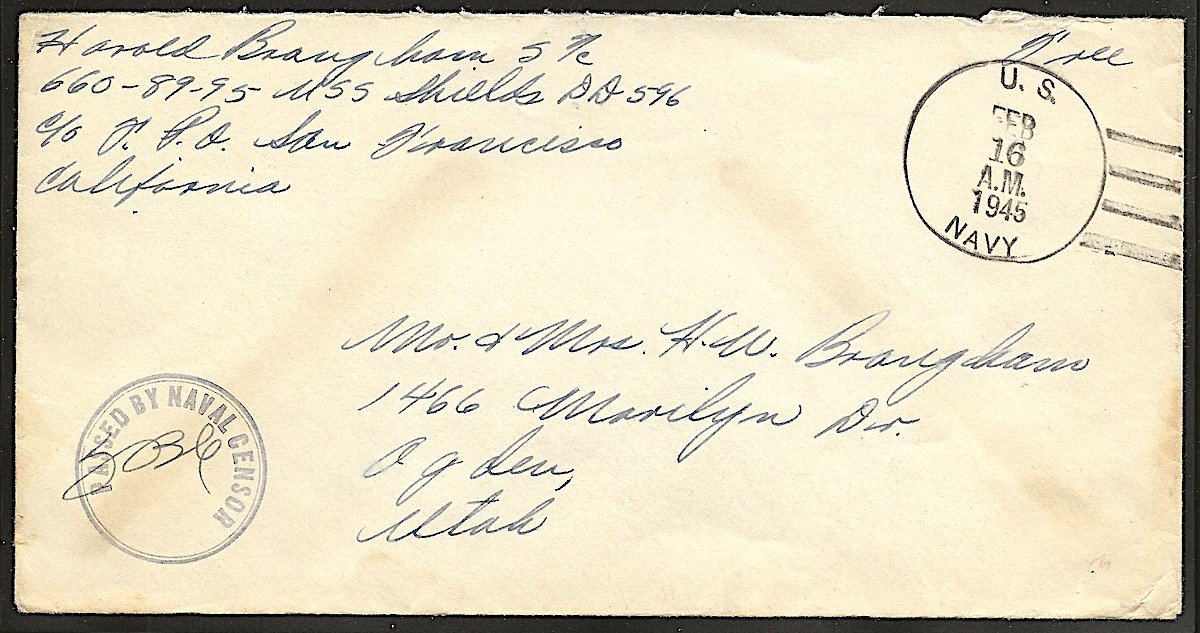 Harold Brangham S 2/c
660-89-95 USS Shields DD 596
c/o F. P.O. San Francisco
California
Free
U. S.
FEB
16
A.M.
1945
NAVY
Mr. & Mrs. H. W. Brangham
1466 Marilyn Dr.
Ogden,
Utah
PASSED BY NAVAL CENSOR